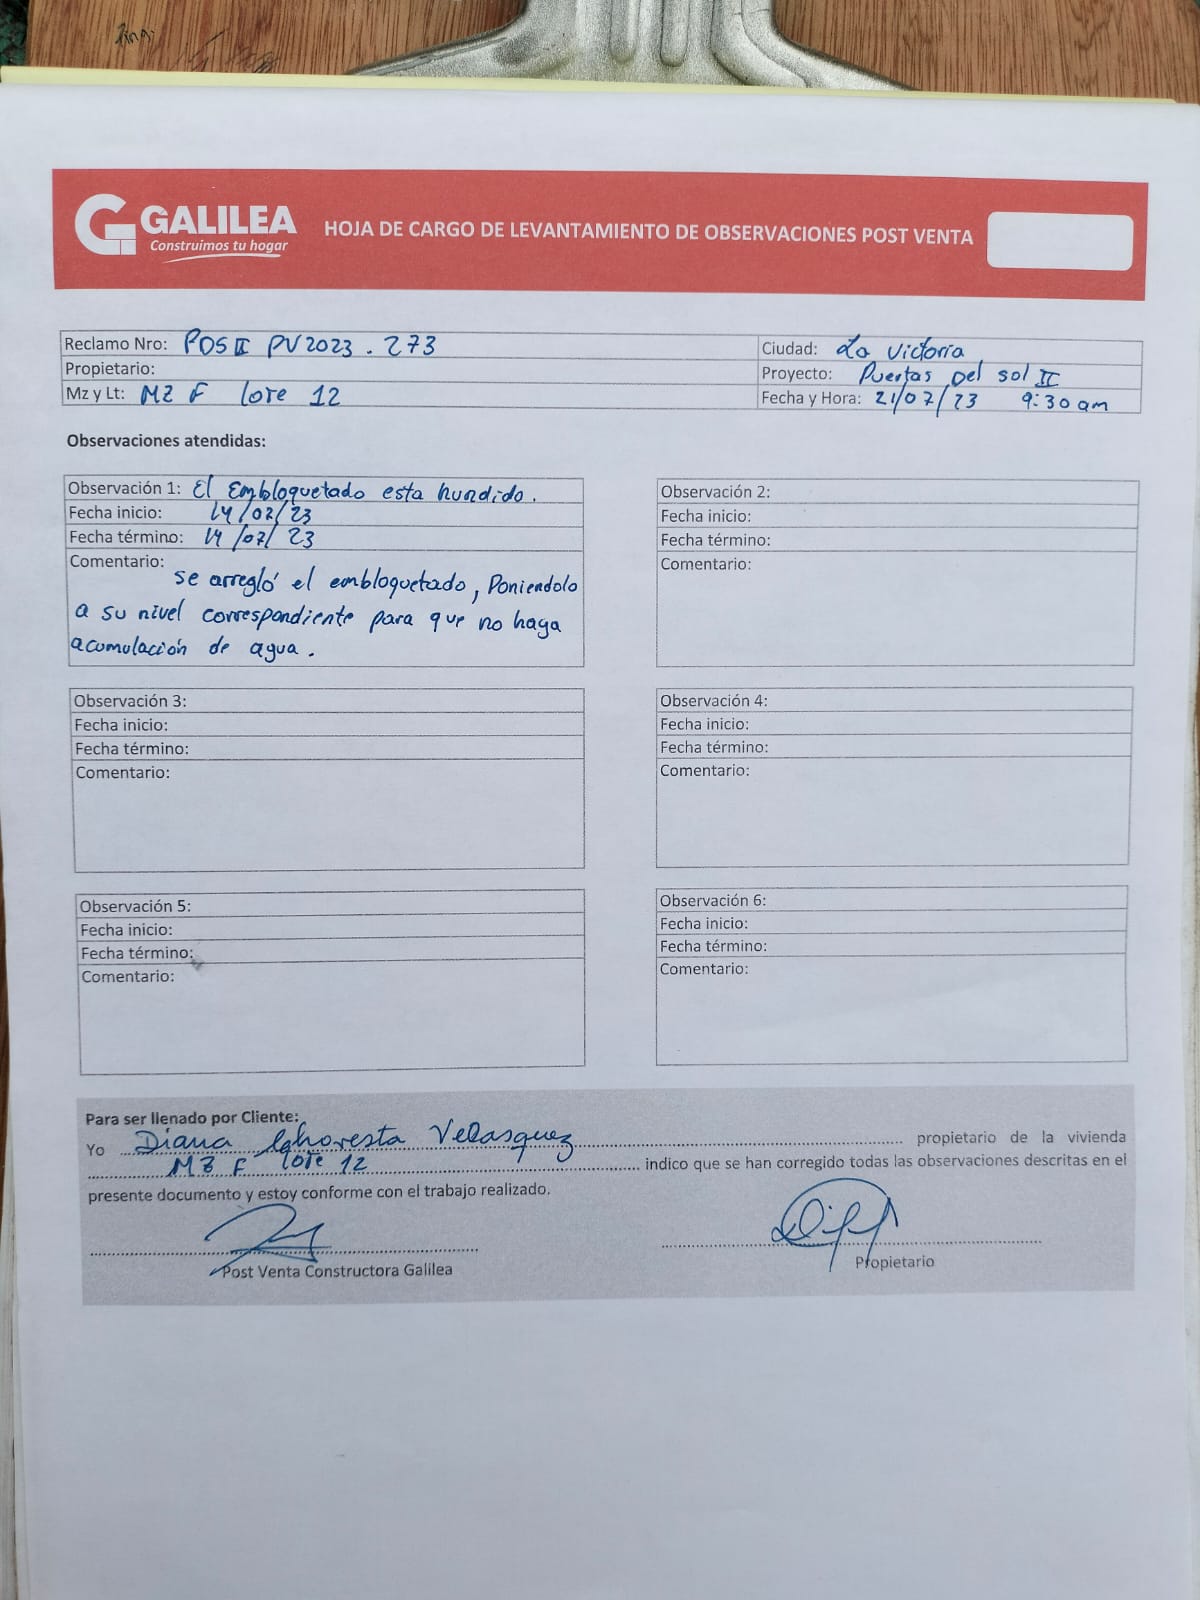 GALILEA
Construimos tu hogar
HOJA DE CARGO DE LEVANTAMIENTO DE OBSERVACIONES POST VENTA
Reclamo Nro: PDS II PV2023.273
Ciudad: La Victoria
Propietario:
Proyecto: Puertas Del sol II
Mz y Lt: MZ F lote 12
Fecha y Hora: 21/07/23 9:30 am
Observaciones atendidas:
Observación 1: El Embloquetado esta hundido.
Fecha inicio: 14/07/23
Fecha término: 14/07/23
Comentario:
se arregló el embloquetado, Poniendolo
a su nivel correspondiente para que no haga
acumulación de agua.
Observación 2:
Fecha inicio:
Fecha término:
Comentario:
Observación 3:
Fecha inicio:
Fecha término:
Comentario:
Observación 4:
Fecha inicio:
Fecha término:
Comentario:
Observación 5:
Fecha inicio:
Fecha término:
Comentario:
Observación 6:
Fecha inicio:
Fecha término:
Comentario:
Para ser llenado por Cliente:
Yo Diana Velasquez propietario de la vivienda
MZ F lote 12 indico que se han corregido todas las observaciones descritas en el
presente documento y estoy conforme con el trabajo realizado.
Post Venta Constructora Galilea
Propietario